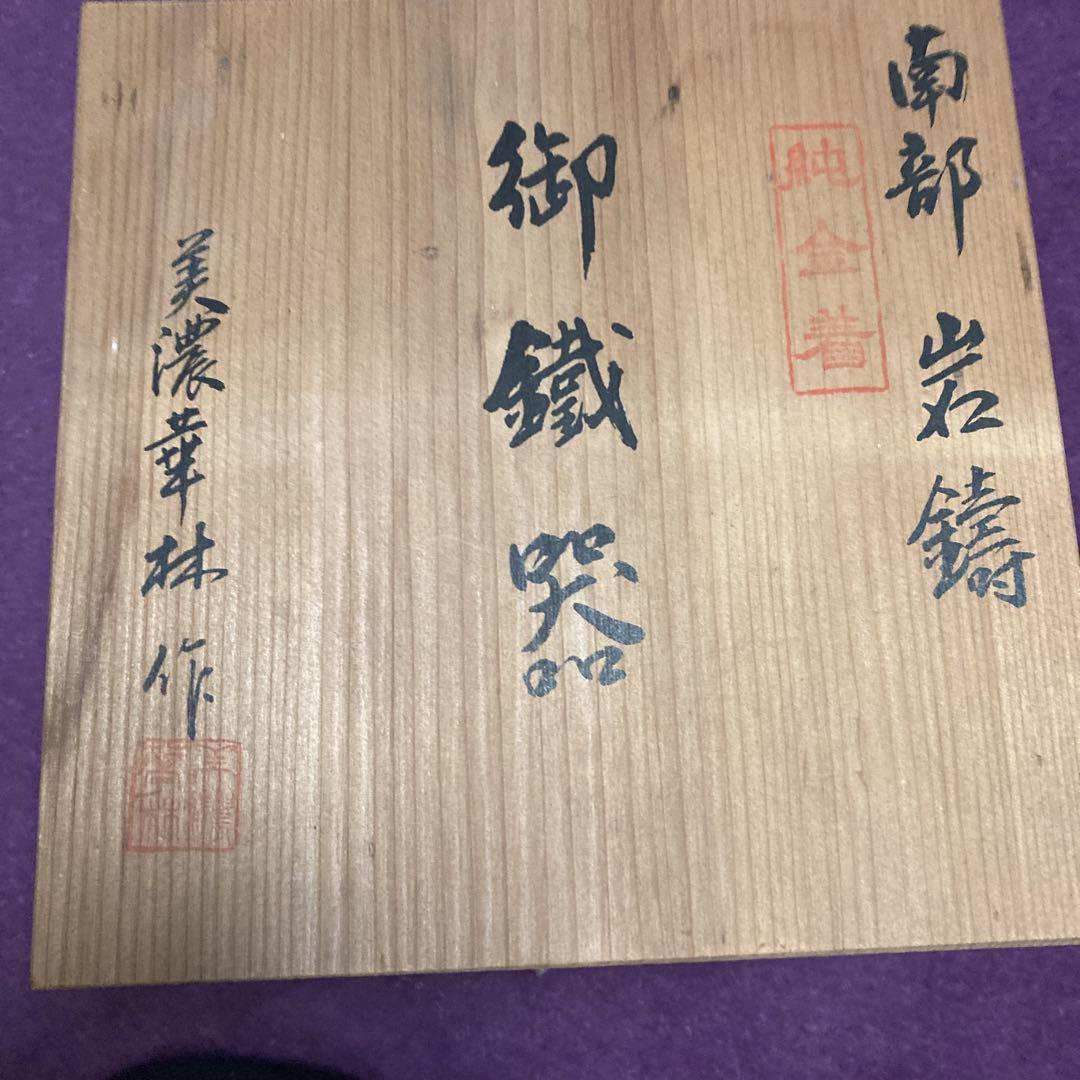 南部 岩鑄
純金着
御鐵器
美濃華林 作